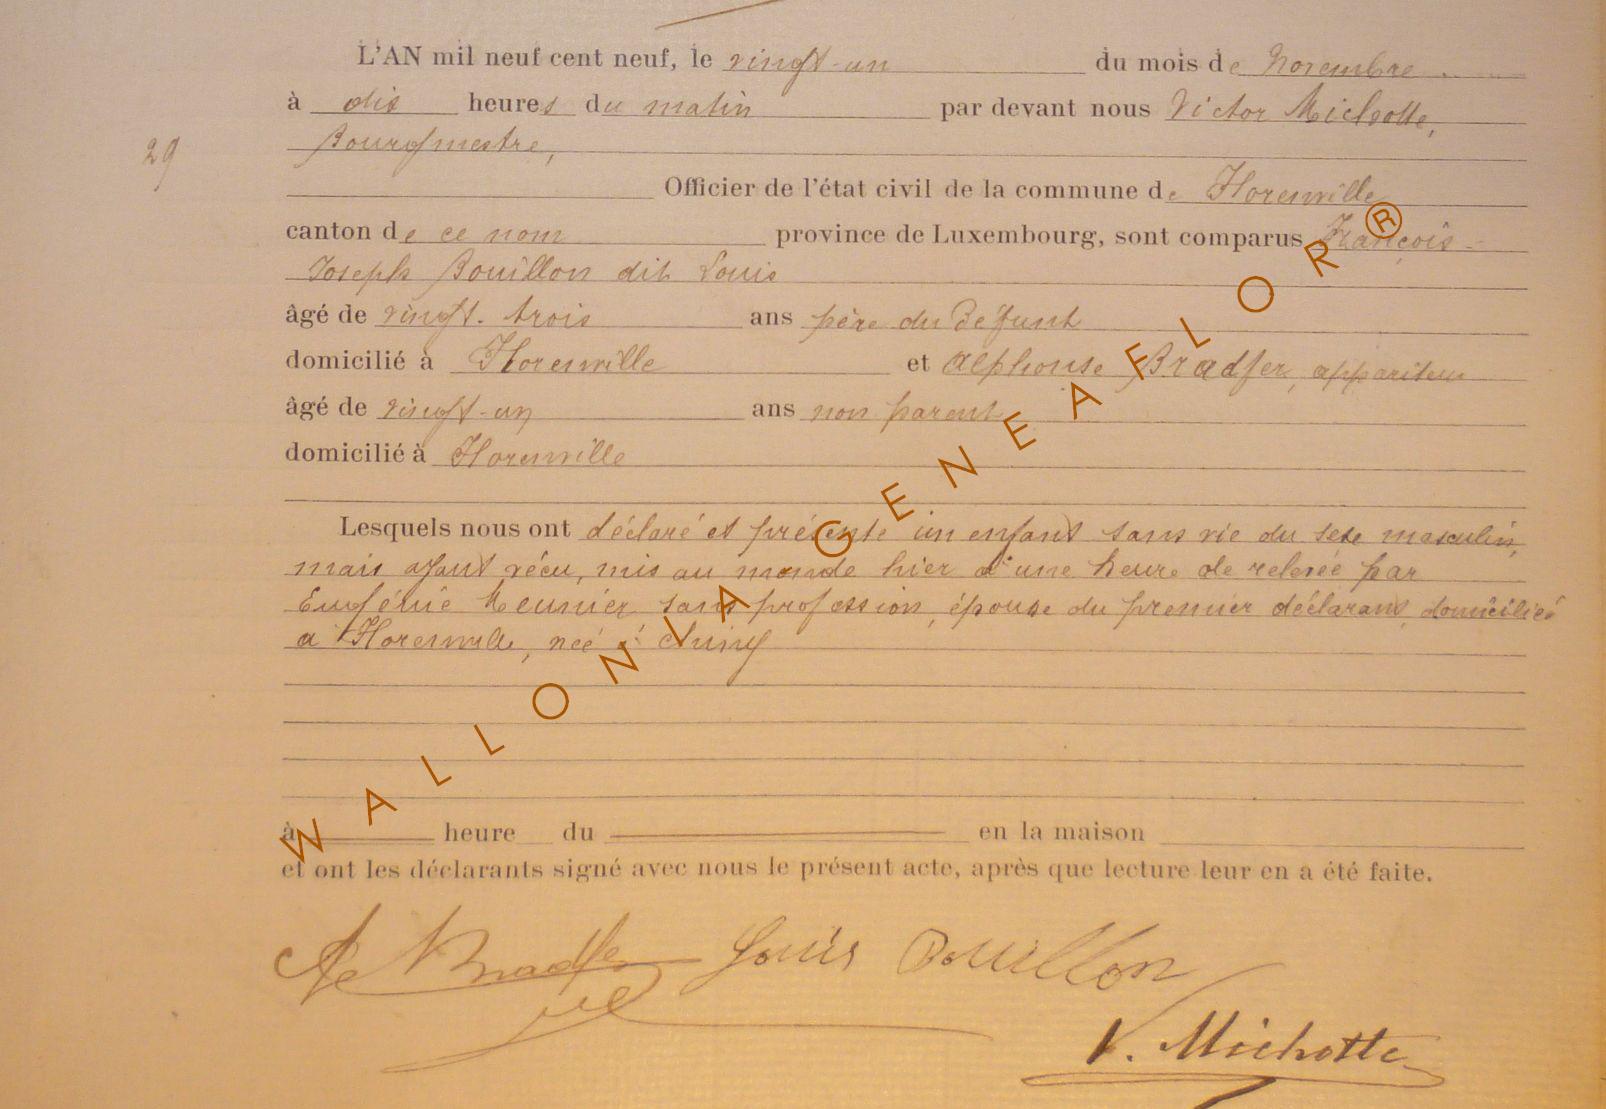 L'AN mil neuf cent neuf, le vingt-un du mois de Novembre
à dix heures du matin par devant nous Victor Michotte,
29
Bourgmestre,
Officier de l'état civil de la commune de Florenville
canton de ce nom province de Luxembourg, sont comparus François-
Joseph Bouillon dit Louis
âgé de vingt-trois ans père du Défunt
domicilié à Florenville et Alphonse Bradfer, appariteur
âgé de vingt-un ans non parent
domicilié à Florenville
Lesquels nous ont déclaré et présenté un enfant sans vie du sexe masculin,
mais ayant vécu, mis au monde hier à une heure de relevée par
Eugénie Meunier sans profession, épouse du premier déclarant, domiciliée
à Florenville, née à Chiny
à heure du en la maison
et ont les déclarants signé avec nous le présent acte, après que lecture leur en a été faite.
Bradfer Louis Bouillon
V. Michotte
WALLONIA GENEAFLOR®